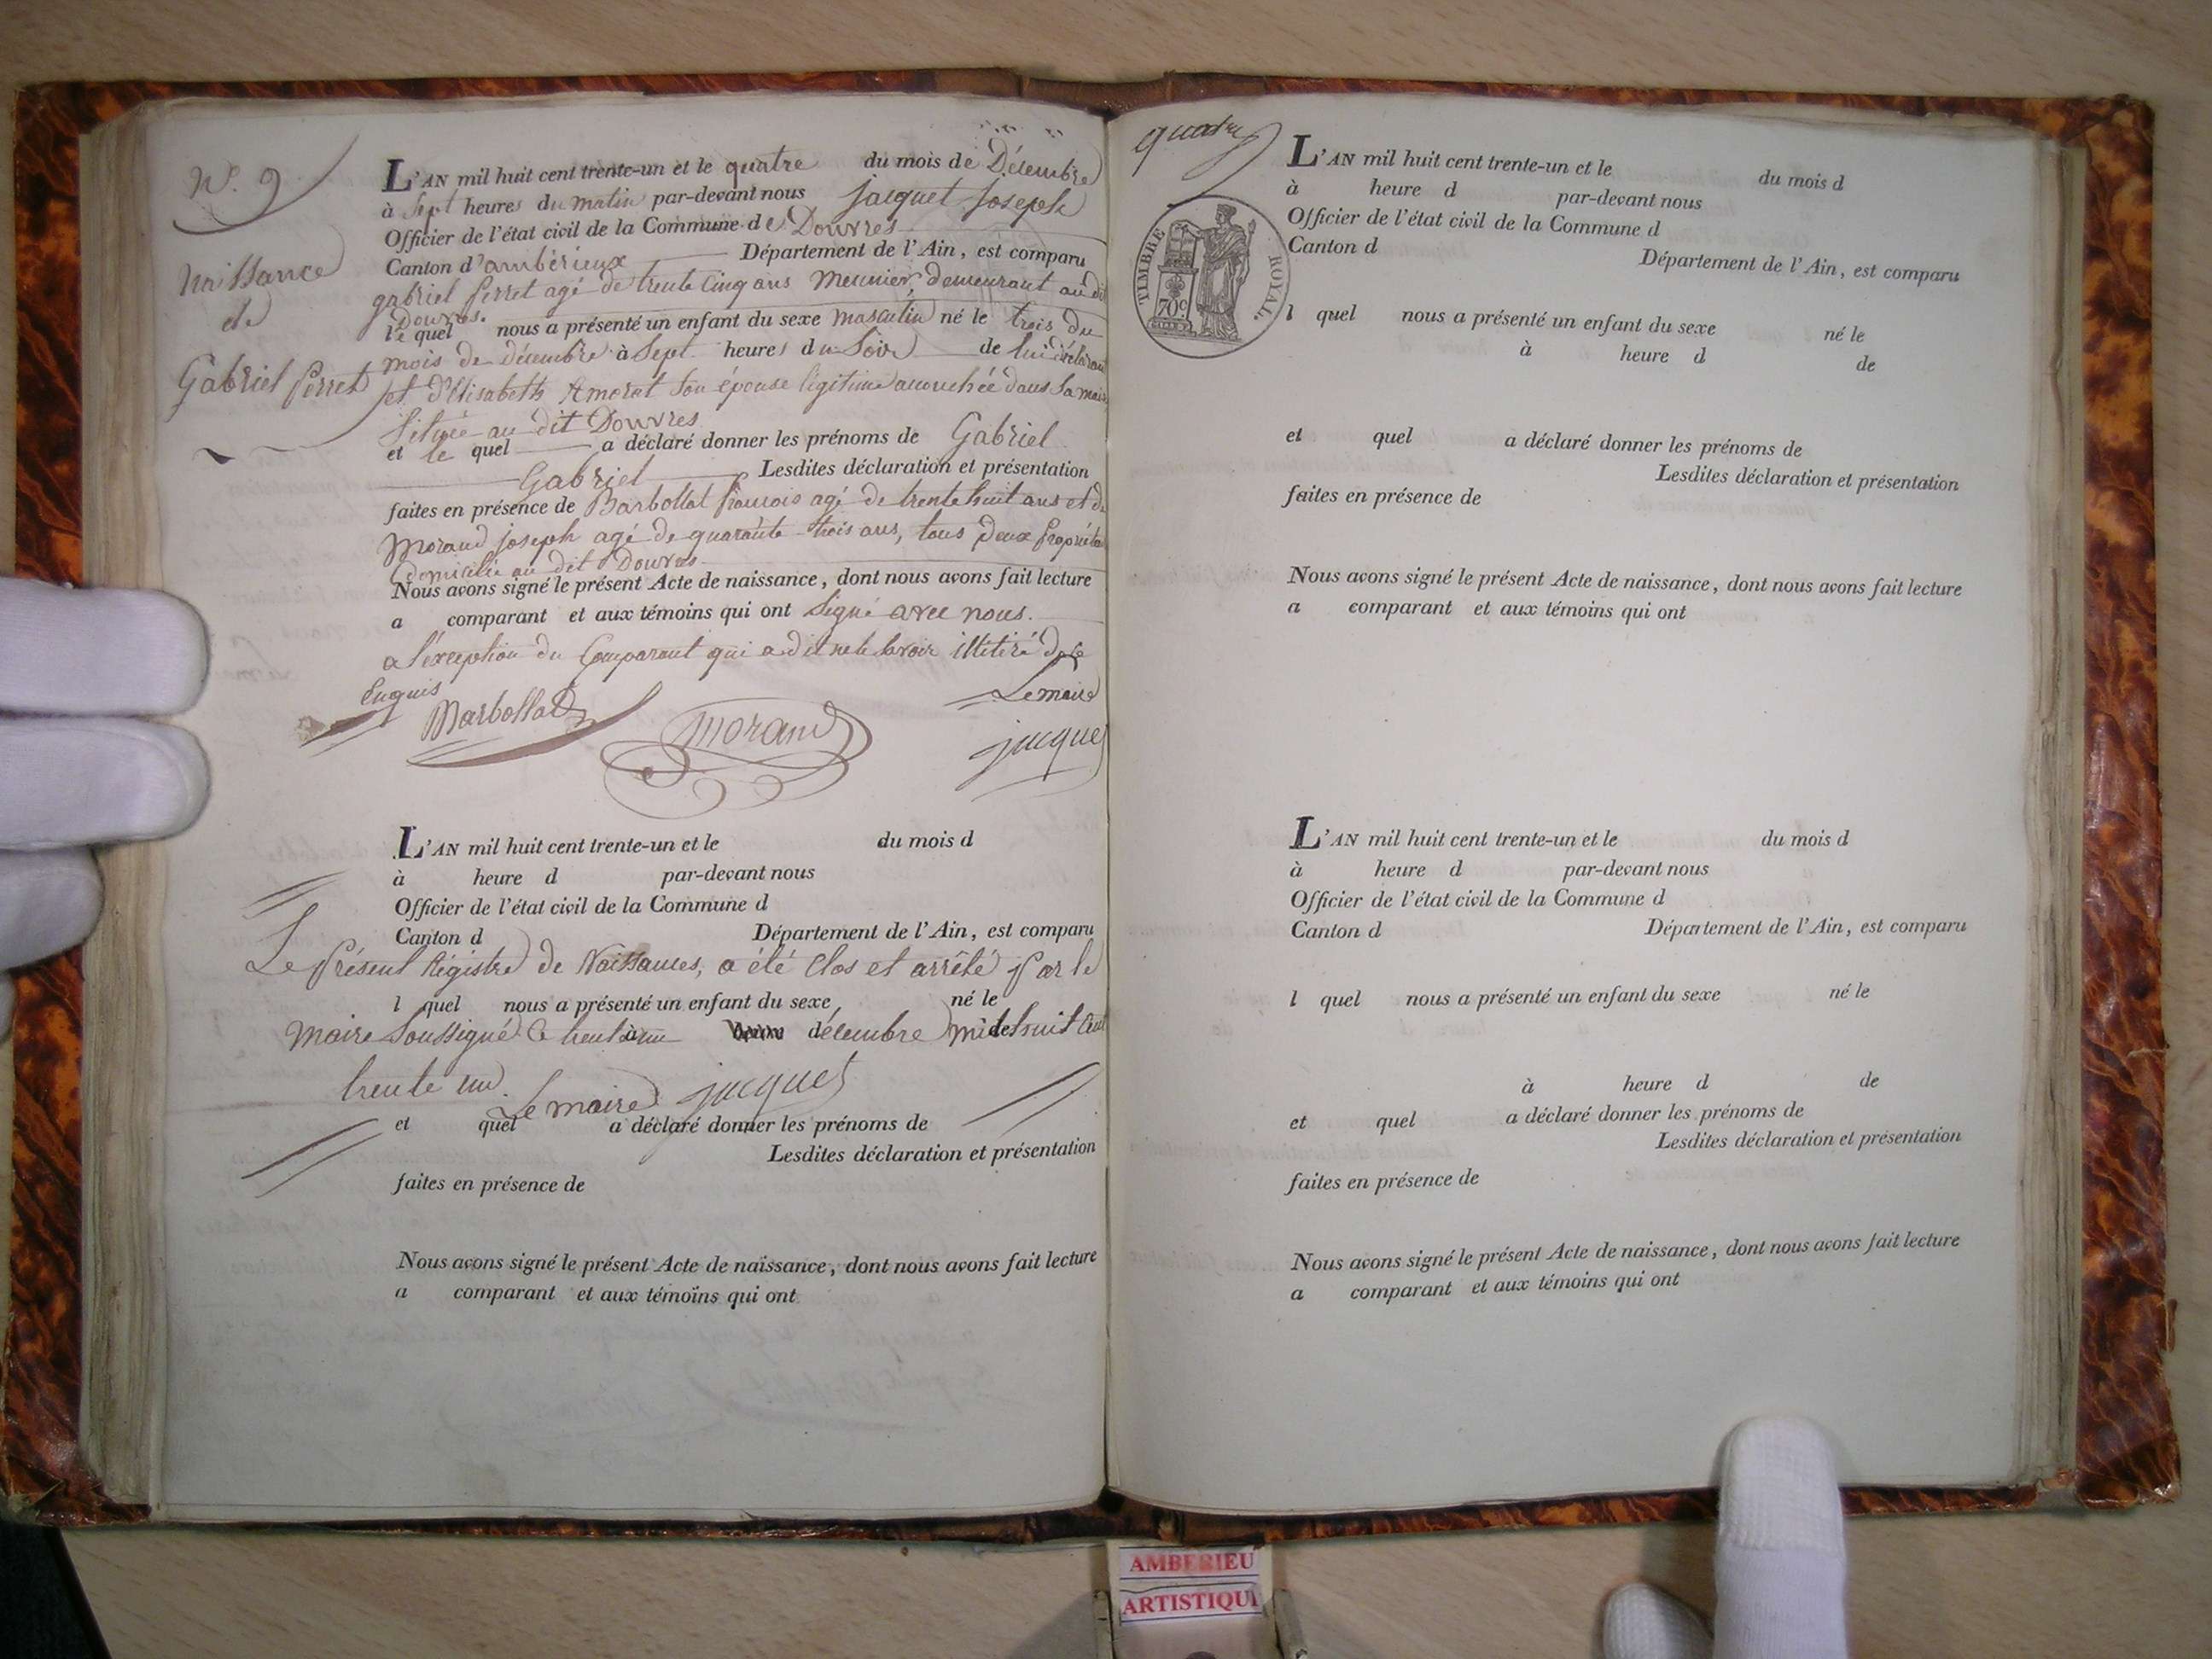 N.° 9
naissance
de
Gabriel Perret
L'AN mil huit cent trente-un et le quatre du mois de Décembre
à Sept heures du matin par-devant nous jacquet joseph
Officier de l'état civil de la Commune de Douvres
Canton d'ambérieux Département de l'Ain, est comparu
gabriel perret agé de trente cinq ans Meunier, demeurant au dit
Douvres.
le quel nous a présenté un enfant du sexe masculin né le trois du
mois de décembre à Sept heures du Soir de lui déclarant
et d'Elisabeth Amoret son épouse légitime accouchée dans sa maison
située au dit Douvres
et le quel a déclaré donner les prénoms de Gabriel
Gabriel Lesdites déclaration et présentation
faites en présence de Barbollat françois agé de trente huit ans et de
Morand joseph agé de quarante trois ans, tous deux propriétaires
domicilié au dit Douvres
Nous avons signé le présent Acte de naissance, dont nous avons fait lecture
a comparant et aux témoins qui ont signé avec nous.
a l'exception du Comparant qui a dit ne le savoir de ce
Enquis
Barbollat Morand Le maire
jacquet
L'AN mil huit cent trente-un et le du mois d
à heure d par-devant nous
Officier de l'état civil de la Commune d
Canton d Département de l'Ain, est comparu
Le présent Régistre de Naissances, a été clos et arrêté par le
l quel nous a présenté un enfant du sexe né le
maire soussigné le trente un à décembre mil de huit cent
trente un. Le maire jacquet
et quel a déclaré donner les prénoms de
Lesdites déclaration et présentation
faites en présence de
Nous avons signé le présent Acte de naissance, dont nous avons fait lecture
a comparant et aux témoins qui ont
quatre
TIMBRE ROYAL.
70c
L'AN mil huit cent trente-un et le du mois d
à heure d par-devant nous
Officier de l'état civil de la Commune d
Canton d Département de l'Ain, est comparu
l quel nous a présenté un enfant du sexe né le
à heure d de
et quel a déclaré donner les prénoms de
Lesdites déclaration et présentation
faites en présence de
Nous avons signé le présent Acte de naissance, dont nous avons fait lecture
a comparant et aux témoins qui ont
L'AN mil huit cent trente-un et le du mois d
à heure d par-devant nous
Officier de l'état civil de la Commune d
Canton d Département de l'Ain, est comparu
l quel nous a présenté un enfant du sexe né le
à heure d de
et quel a déclaré donner les prénoms de
Lesdites déclaration et présentation
faites en présence de
Nous avons signé le présent Acte de naissance, dont nous avons fait lecture
a comparant et aux témoins qui ont
AMBERIEU
ARTISTIQU